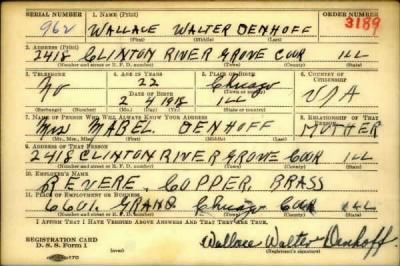 SERIAL NUMBER 1. NAME (Print) ORDER NUMBER
962 WALLACE WALTER DENHOFF 3189
(First) (Middle) (Last)
2. ADDRESS (Print)
2418 CLINTON RIVER GROVE COOK ILL
(Number and street or R. F. D. number) (Town) (County) (State)
3. TELEPHONE 4. AGE IN YEARS 5. PLACE OF BIRTH 6. COUNTRY OF CITIZENSHIP
No 22 Chicago
DATE OF BIRTH
2 4 1918 ILL USA
(Mo.) (Day) (Yr.)
7. NAME OF PERSON WHO WILL ALWAYS KNOW YOUR ADDRESS 8. RELATIONSHIP OF THAT PERSON
Mrs MABEL DENHOFF MOTHER
(Mr., Mrs., Miss) (First) (Middle) (Last)
9. ADDRESS OF THAT PERSON
2418 CLINTON RIVER GROVE COOK ILL
(Number and street or R. F. D. number) (Town) (County) (State)
10. EMPLOYER'S NAME
REVERE. COPPER. BRASS
11. PLACE OF EMPLOYMENT OR BUSINESS
6601. GRAND Chicago Cook ILL
(Number and street or R. F. D. number) (Town) (County) (State)
I AFFIRM THAT I HAVE VERIFIED ABOVE ANSWERS AND THAT THEY ARE TRUE.
REGISTRATION CARD
D. S. S. Form 1
Wallace Walter Denhoff
(Registrant's signature)